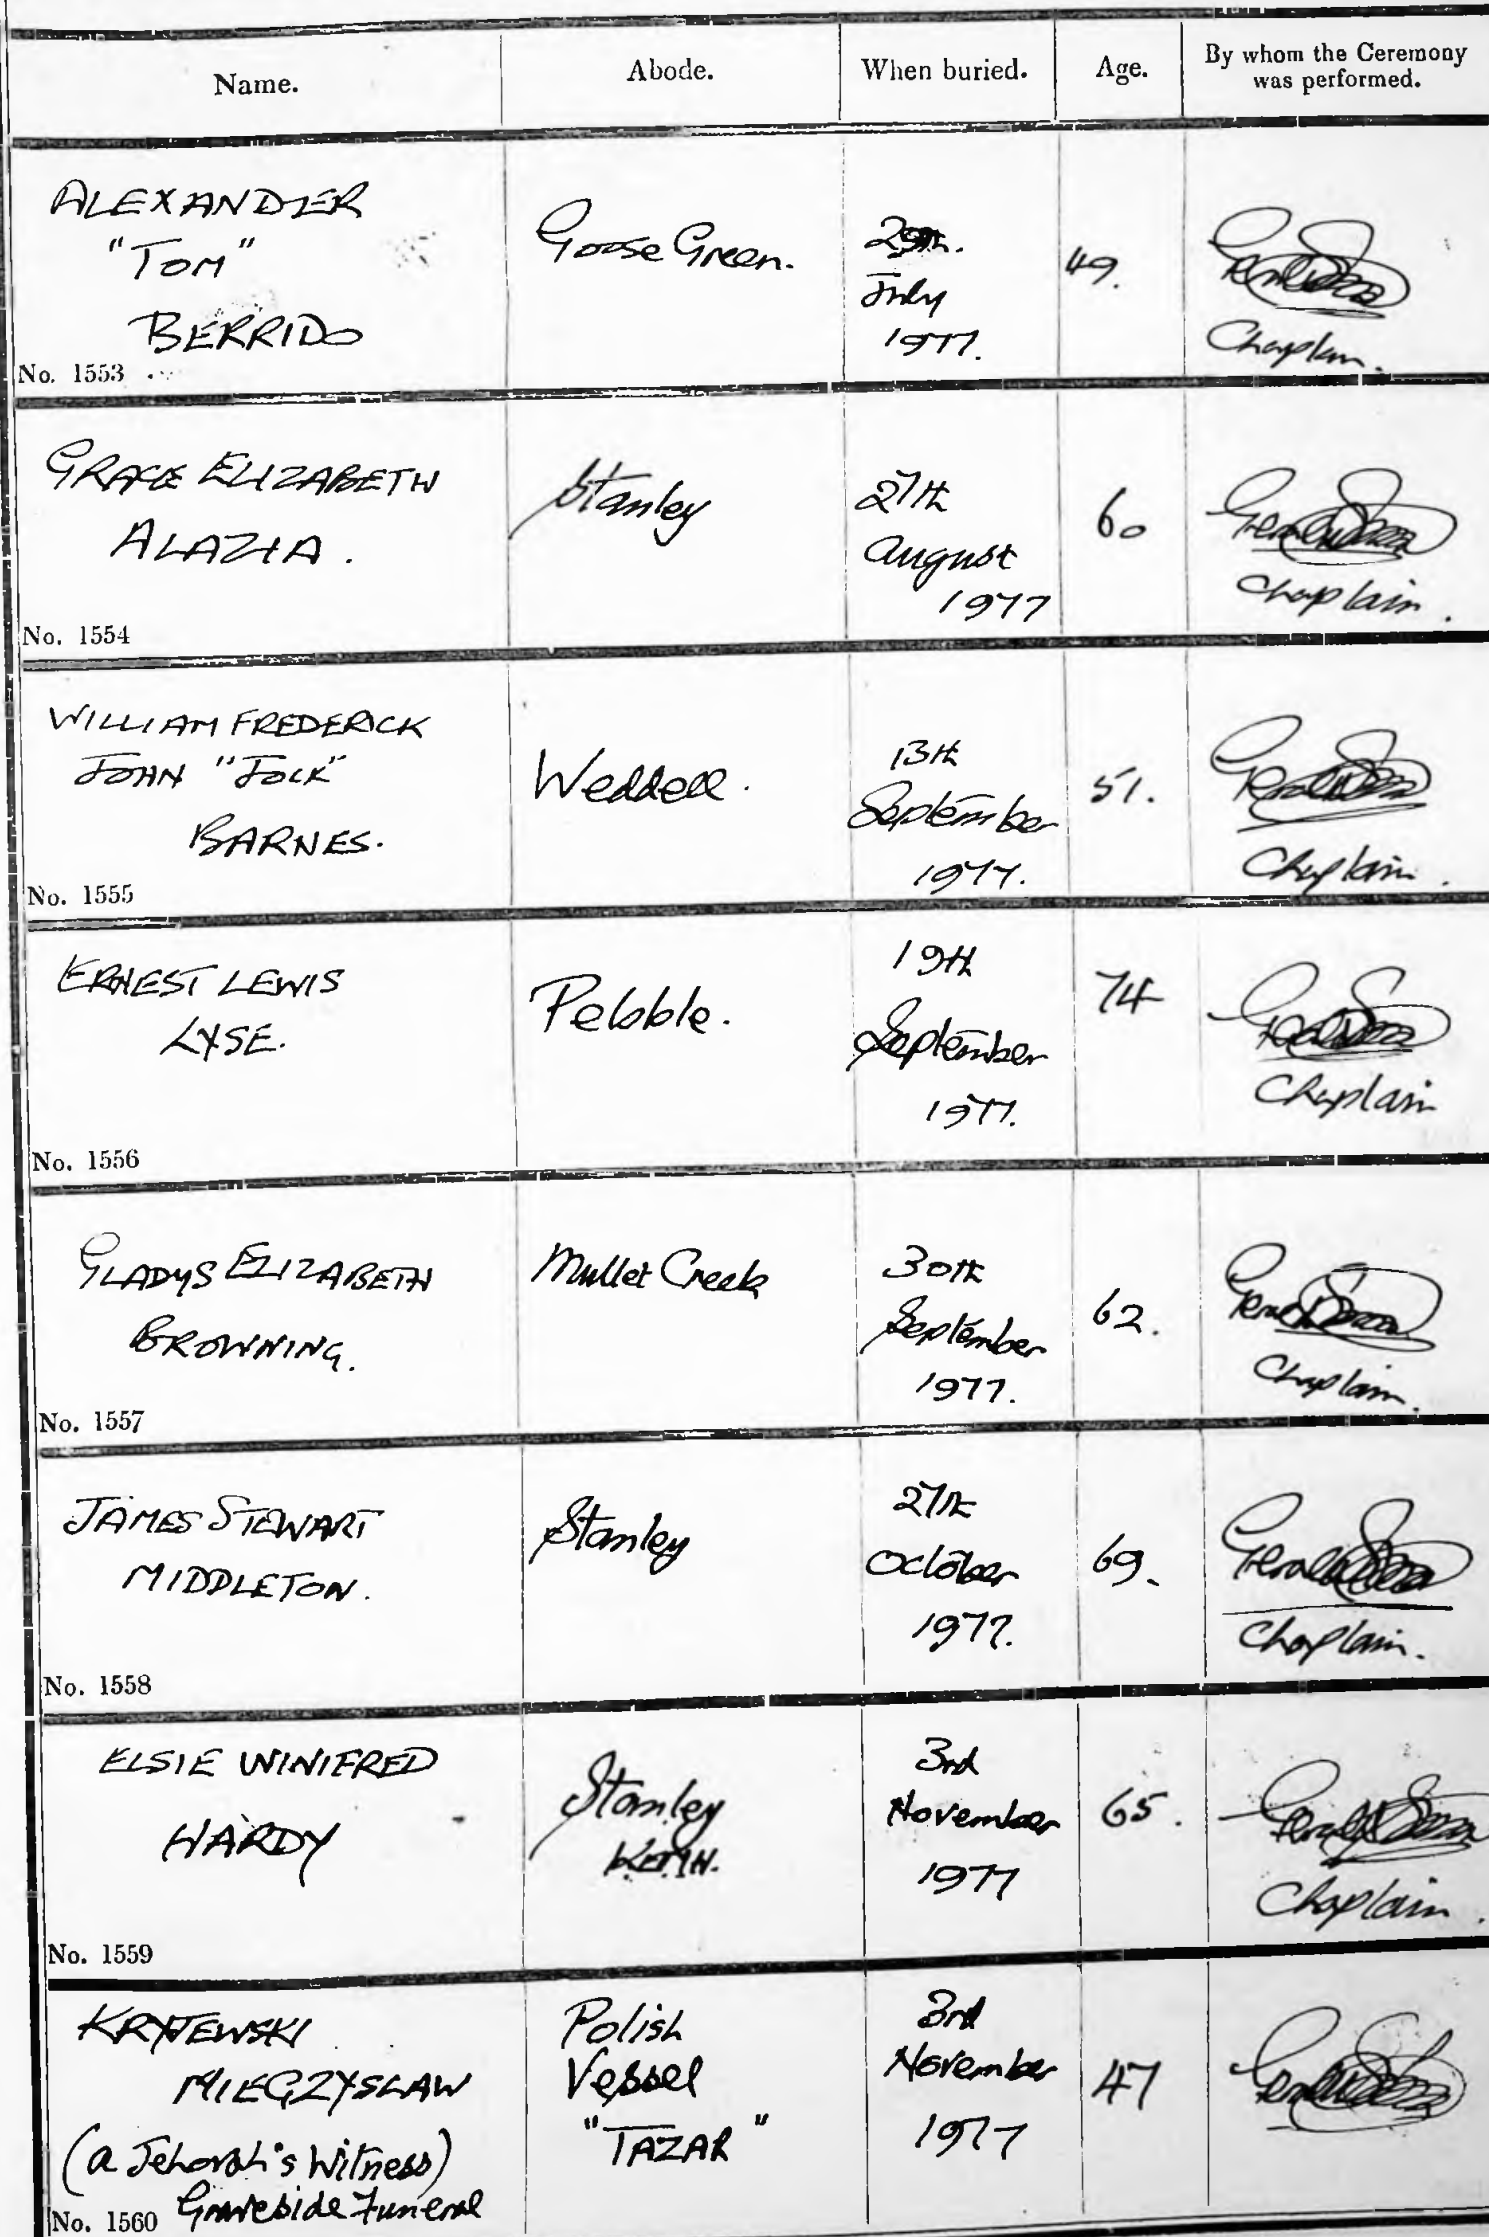 Name.
Abode.
When buried.
Age.
By whom the Ceremony
was performed.
ALEXANDER
"TOM"
BERRIDO
No. 1553
Goose Green.
July
1977.
49.
Chaplain.
GRACE ELIZABETH
ALAZIA.
No. 1554
Stanley
27th
August
1977
60
Chaplain.
WILLIAM FREDERICK
JOHN "JOCK"
BARNES.
No. 1555
Weddell.
13th
September
1977.
51.
Chaplain.
ERNEST LEWIS
LYSE.
No. 1556
Pebble.
19th
September
1977.
74
Chaplain
GLADYS ELIZABETH
BROWNING.
No. 1557
Mullet Creek
30th
September
1977.
62.
Chaplain.
JAMES STEWART
MIDDLETON.
No. 1558
Stanley
27th
October
1977.
69.
Chaplain.
ELSIE WINIFRED
HARDY
No. 1559
Stanley
3rd
November
1977
65.
Chaplain.
KRYJEWSKI
MIECZYSLAW
(a Jehovah's Witness)
No. 1560 Graveside Funeral
Polish
Vessel
"TAZAR"
3rd
November
1977
47